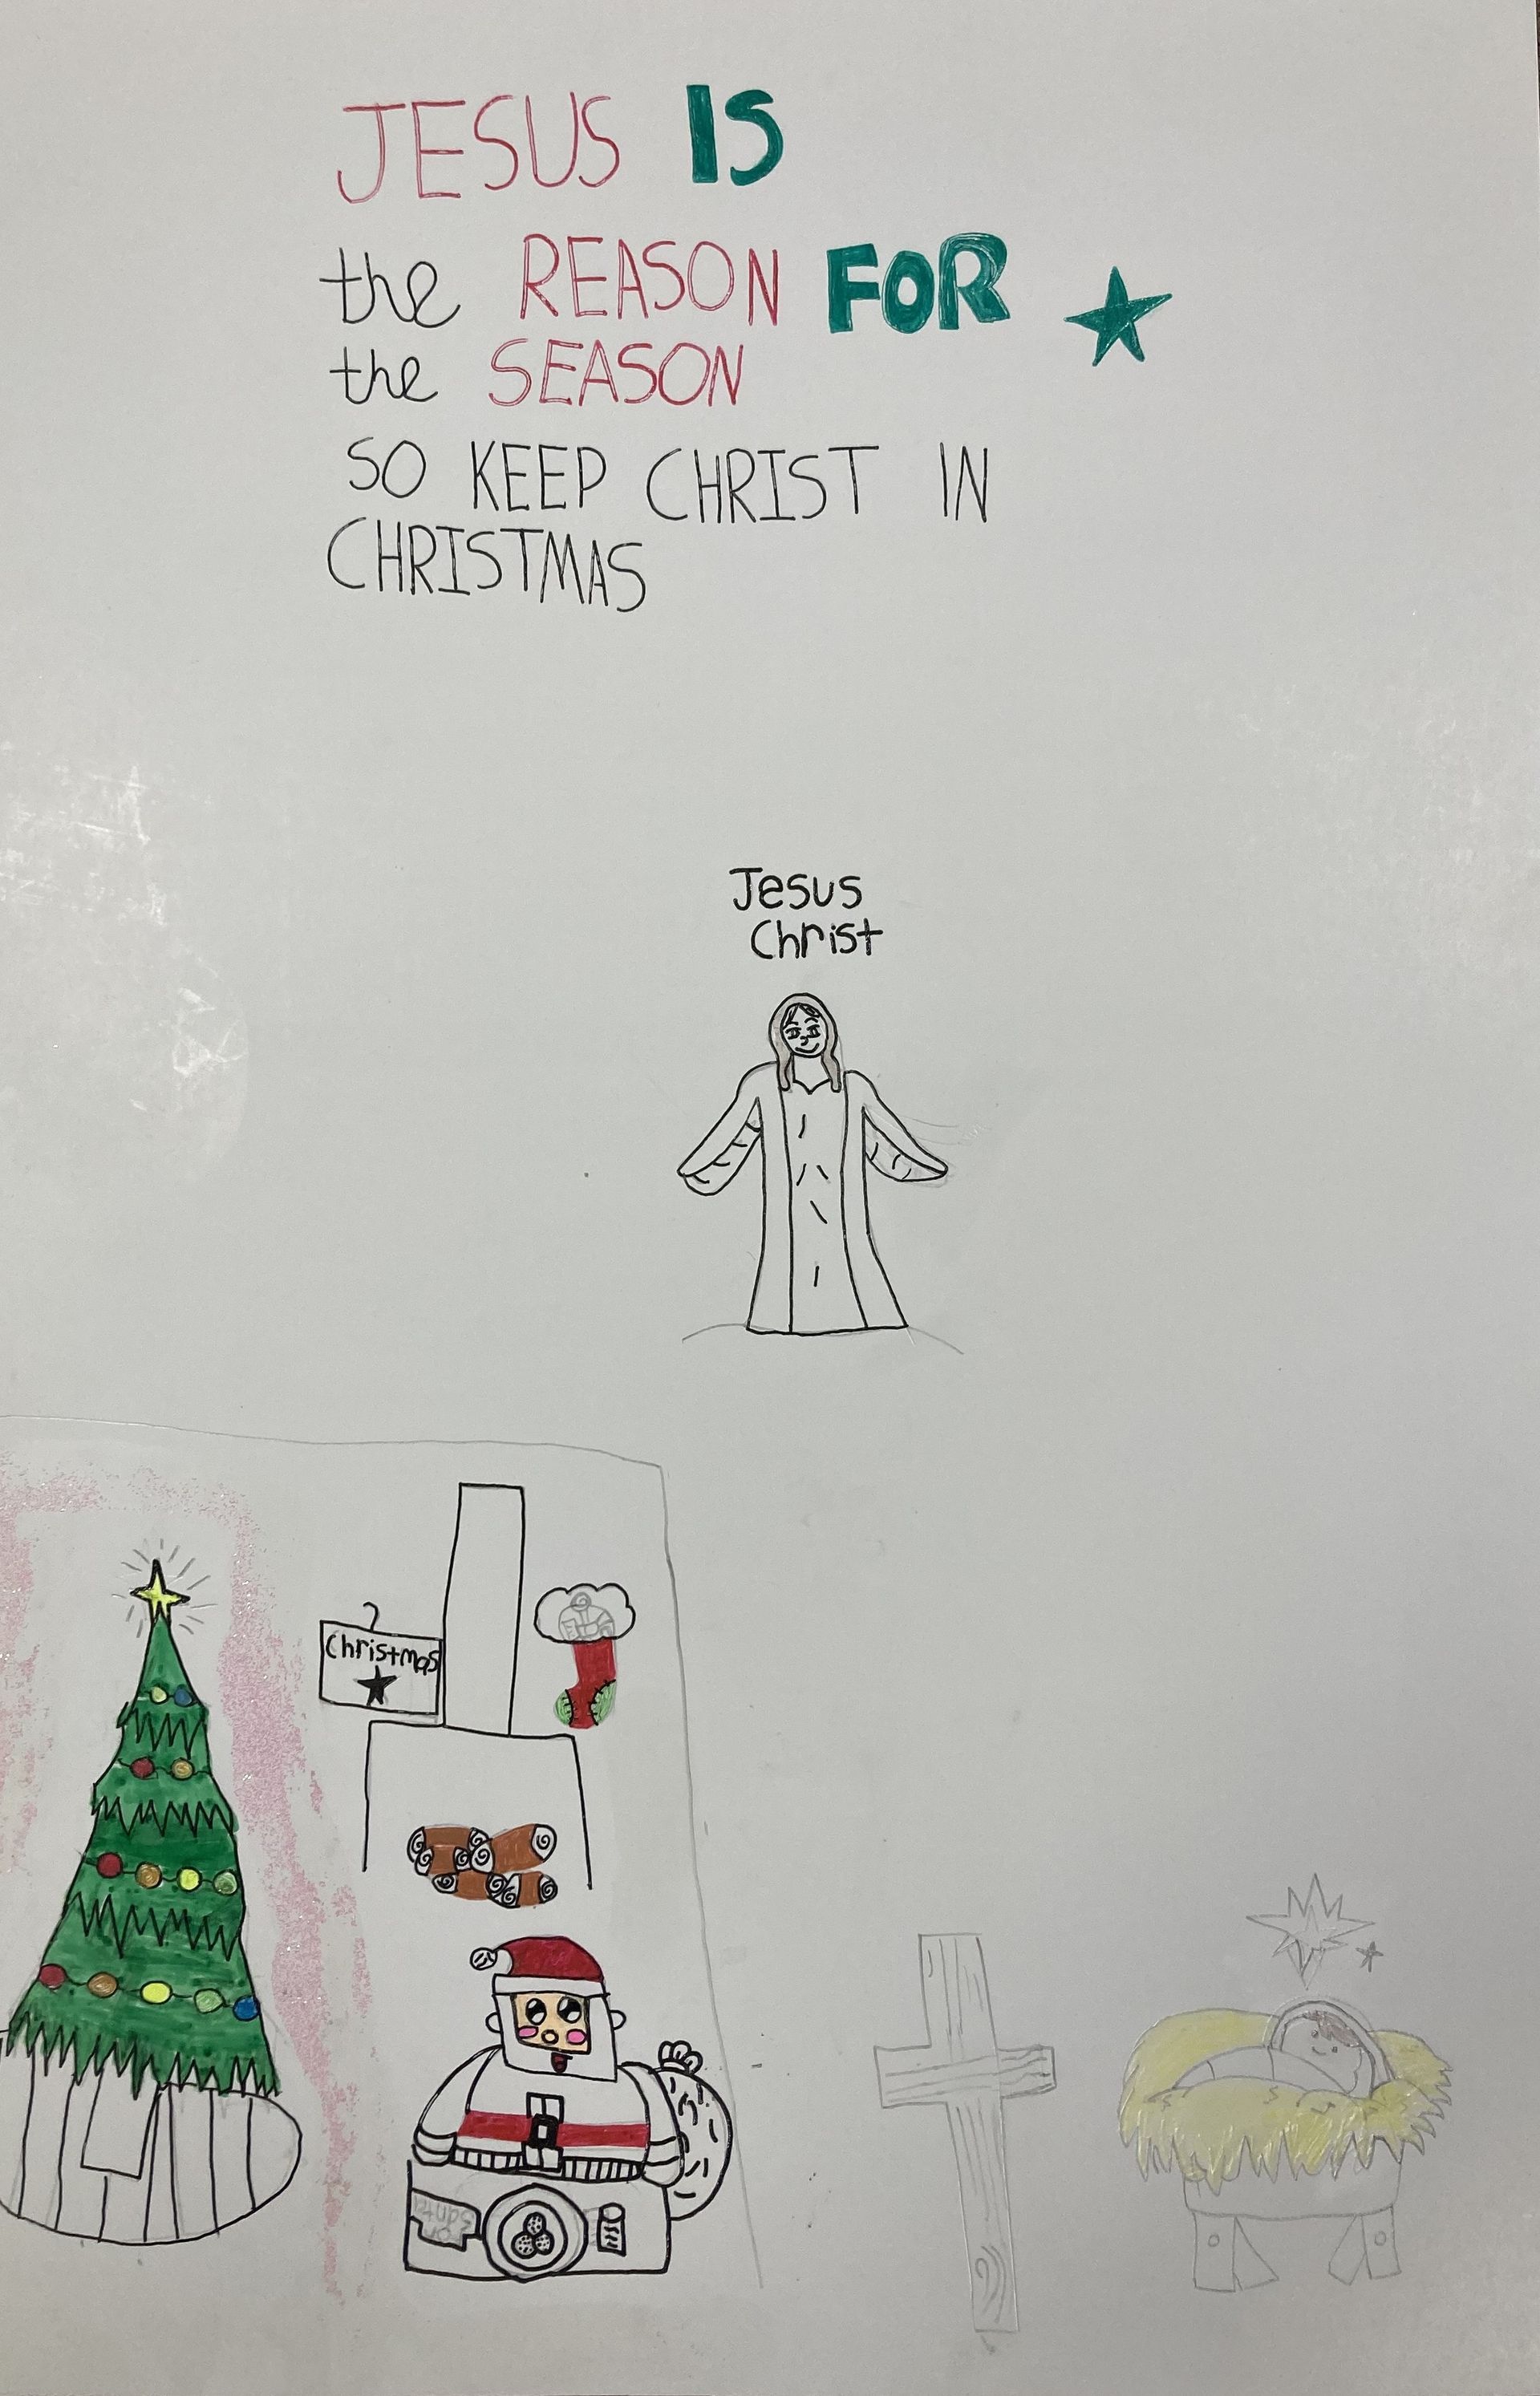 JESUS IS
the REASON FOR
the SEASON
SO KEEP CHRIST IN
CHRISTMAS
Jesus
Christ
Christmas
for
Santa